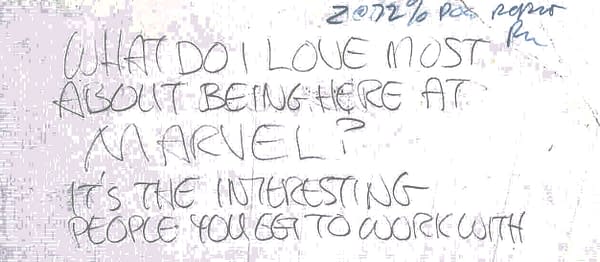 2@72% POS
WHAT DO I LOVE MOST
ABOUT BEING HERE AT
MARVEL?
IT'S THE INTERESTING
PEOPLE YOU GET TO WORK WITH